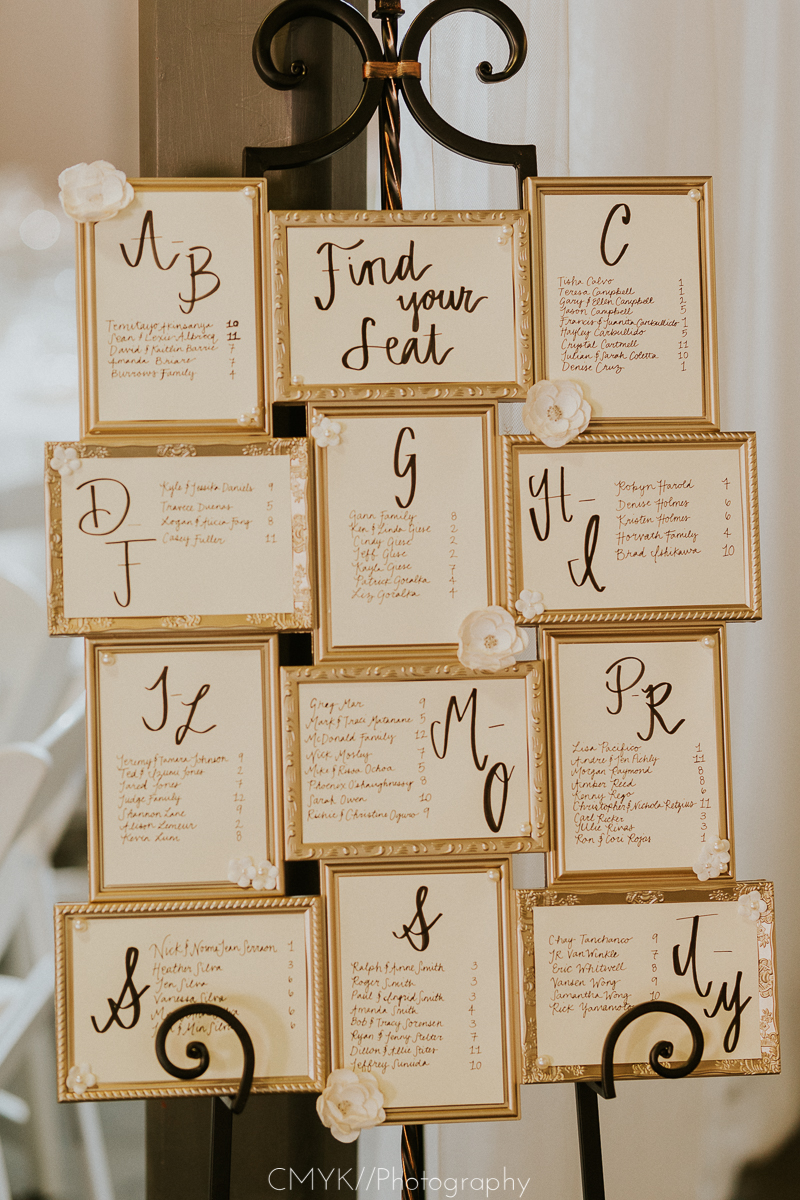 A-B
Temitayo Akinsanya 10
Sean & Lexie Albrecq 11
David & Kaitlin Barrie 7
Amanda Briare 7
Burrows Family 4
Find
your
Seat
C
Tisha Calvo 1
Teresa Campbell 1
Gary & Ellen Campbell 2
Jason Campbell 5
Francis & Juanita Carbullido 1
Hayley Carbullido 5
Crystal Cartmell 11
Julian & Sarah Coletta 10
Denise Cruz 1
D-F
Kyle & Jessika Daniels 9
Duenas 5
Logan & Alicia Fong 8
Casey Fuller 11
G
Gann Family 8
Ken & Linda Giese 2
Cindy Giese 2
Jeff Giese 2
Kayla Giese 7
Patrick Goralka 4
Liz Goralka 4
H-I
Robyn Harold 7
Denise Holmes 6
Kristen Holmes 6
Horvath Family 4
Brad Ishikawa 10
J-L
Jeremy & Tamara Johnson 9
Ted & Izumi Jones 2
Jared Jones 7
Judge Family 11
Shannon Lane 9
Alison Lemeur 2
Kevin Lum 8
M-O
Gray Mar 9
Mark & Traci Matanane 5
McDonald Family 12
Nick Mosley 7
Mike & Rosa Ochoa 5
Phoenix Oshaughnessy 8
Sarah Owen 10
Richie & Christine Oguro 9
P-R
Lisa Pacifico 1
Andre & Jen Pichly 11
Morgan Raymond 8
Amber Reed 8
Kenny Rego 6
Christopher & Nichola Retzius 11
Carl Ricker 3
Julie Rivas 3
Ron & Cori Rojas 1
S
Nick & Norma Jean Serraon 1
Heather Silva 3
Jen Silva 6
Vanessa Silva 6
6
& Min Silva 6
S
Ralph & Anne Smith 3
Roger Smith 3
Paul & Ingrid Smith 3
Amanda Smith 4
Bob & Tracy Sorensen 3
Ryan & Jenny Stelter 7
Dillon & Allie Stites 11
Jeffrey Sunuda 10
T-Y
Chay Tanchanco 9
JR VanWinkle 7
Eric Whitwell 8
Vansen Wong 9
Samantha Wong 9
Rick Yamamoto 10
CMYK//Photography